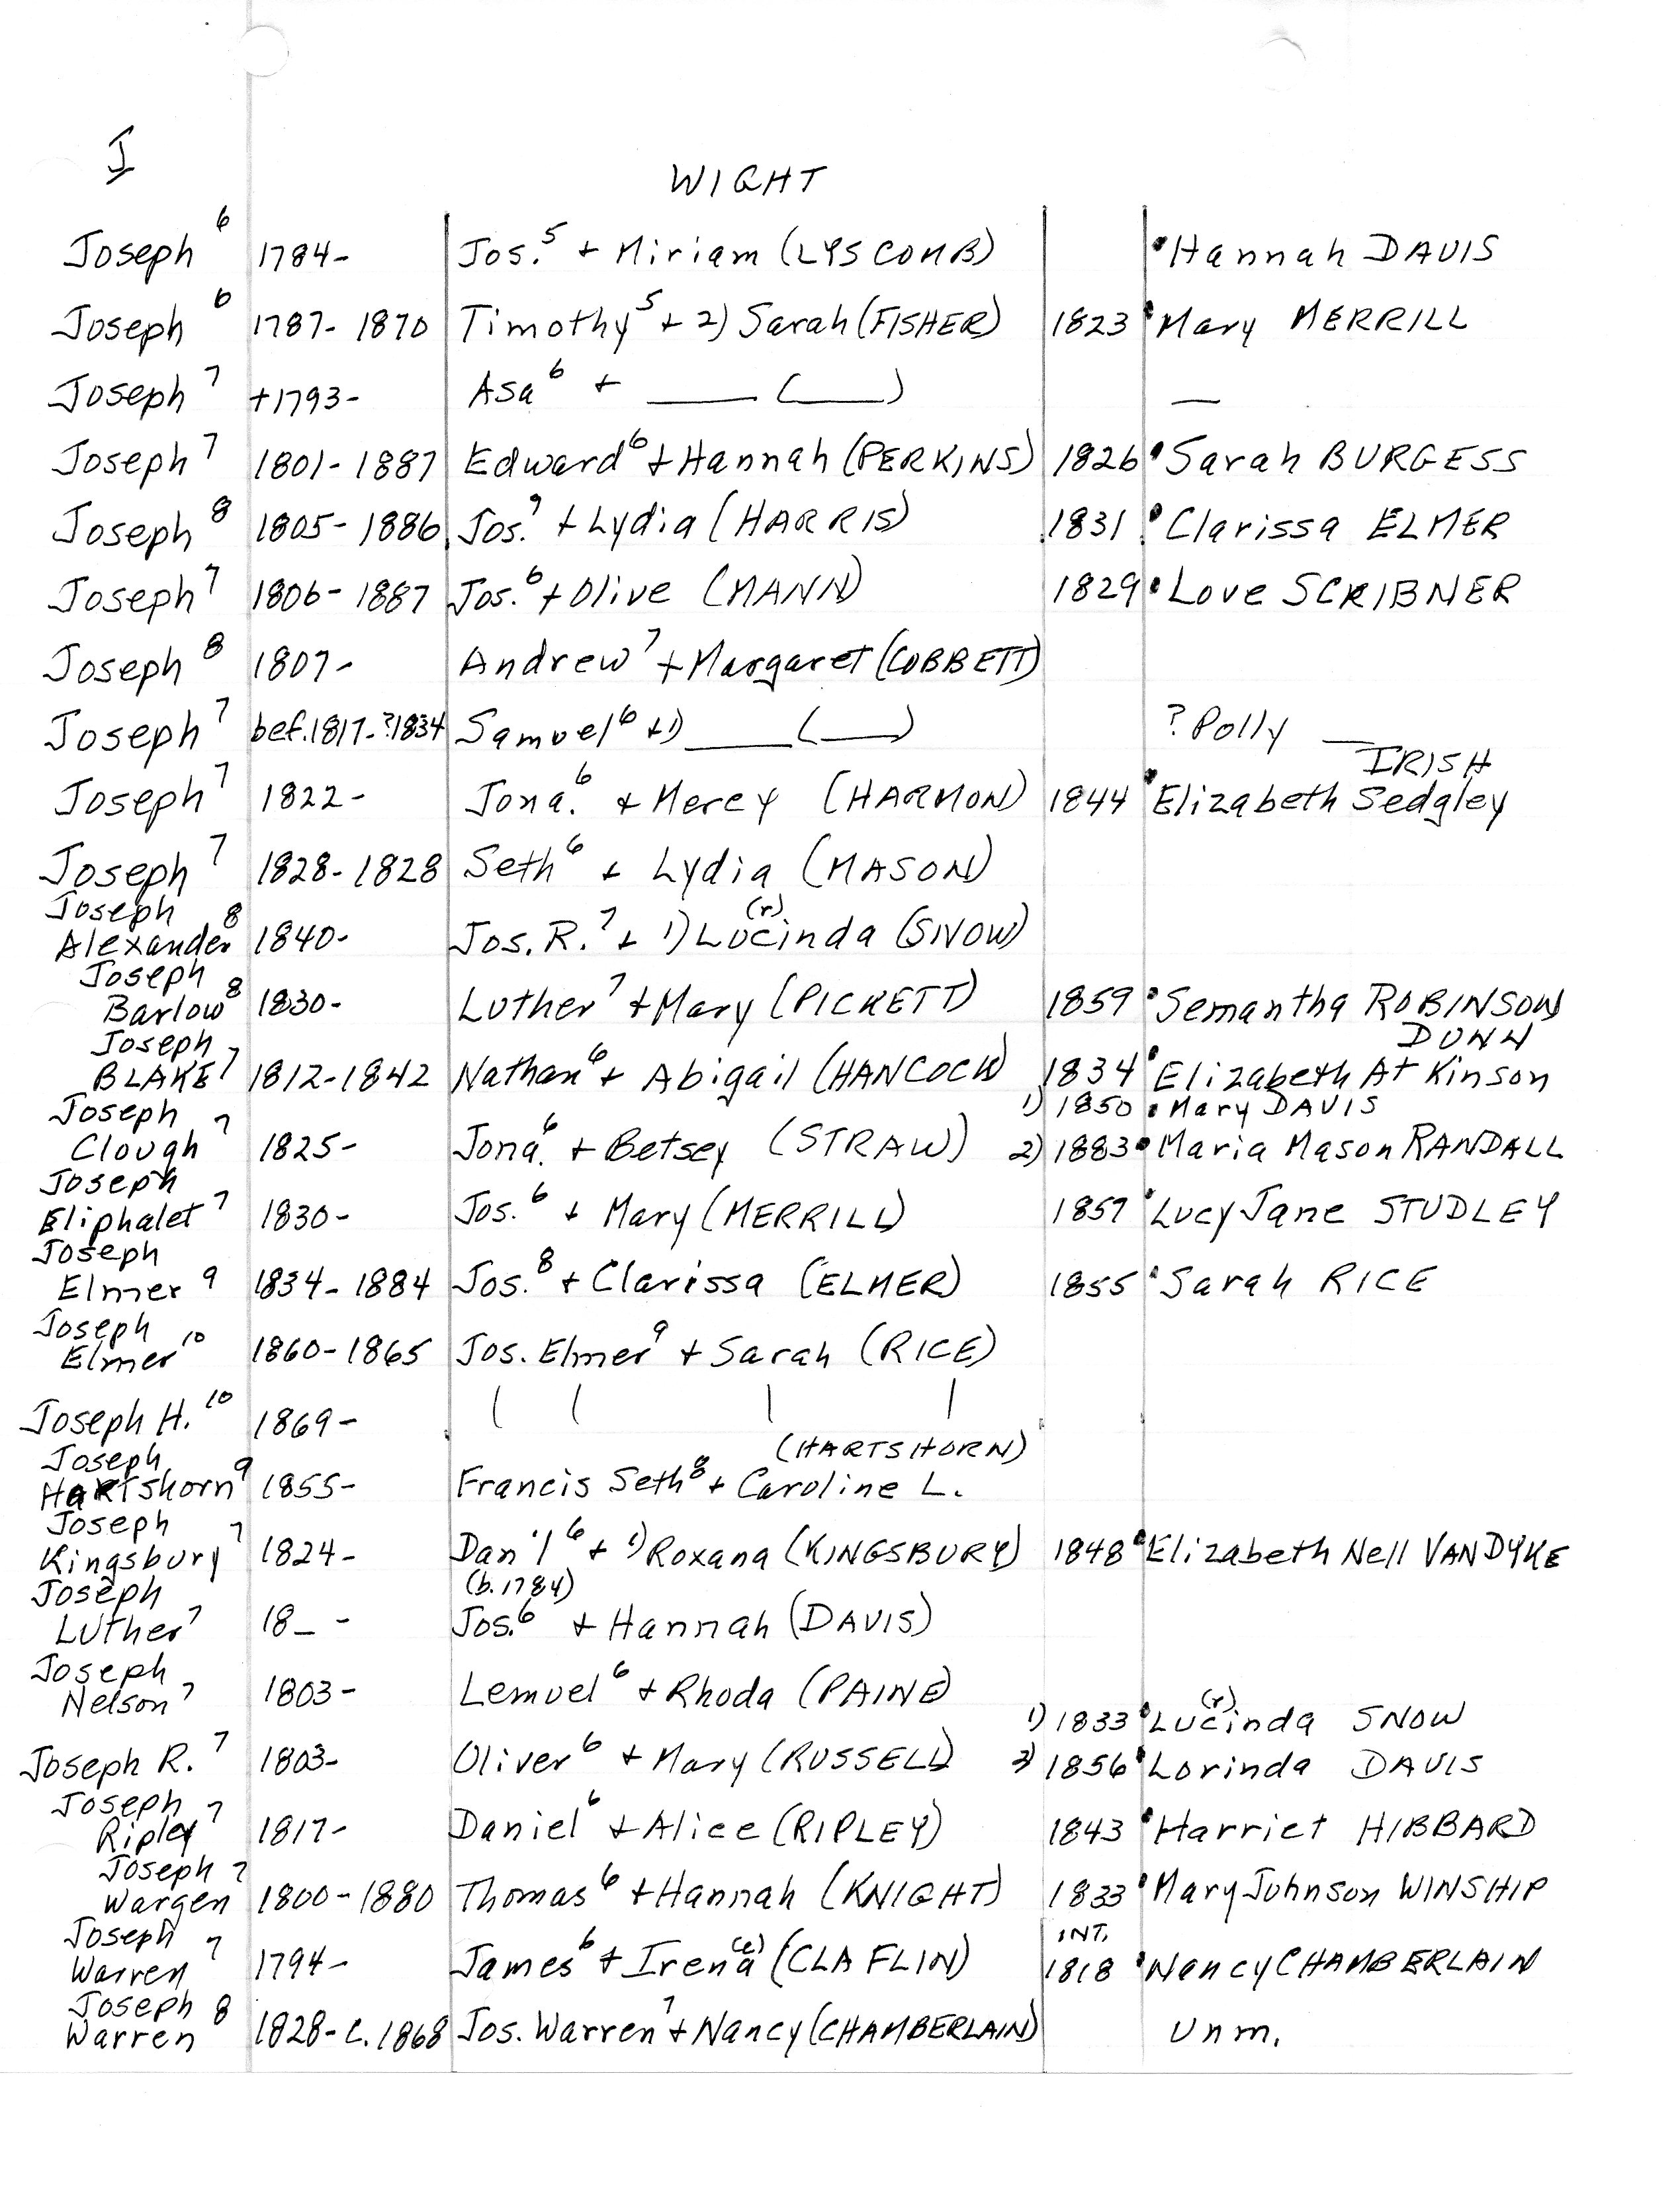 J
WIGHT
Joseph 6 1784- Jos. 5 + Miriam (LYSCOMB) Hannah DAVIS
Joseph 6 1787-1870 Timothy 5 + 2) Sarah (FISHER) 1823 Mary MERRILL
Joseph 7 +1793- Asa 6 + ___ (___) —
Joseph 7 1801-1887 Edward 6 + Hannah (PERKINS) 1826 Sarah BURGESS
Joseph 8 1805-1886 Jos. 7 + Lydia (HARRIS) 1831 Clarissa ELMER
Joseph 7 1806-1887 Jos. 6 + Olive (MANN) 1829 Love SCRIBNER
Joseph 8 1807- Andrew 7 + Margaret (COBBETT)
Joseph 7 bef. 1817-?1834 Samuel 6 + 1) ___ (___) ? Polly __
IRISH
Joseph 7 1822- Jona. 6 + Mercy (HARMON) 1844 Elizabeth Sedgley
Joseph 7 1828-1828 Seth 6 + Lydia (MASON)
Joseph (r)
Alexander 8 1840- Jos. R. 7 + 1) Lucinda (SNOW)
Joseph
Barlow 8 1830- Luther 7 + Mary (PICKETT) 1859 Semantha ROBINSON
Joseph DUNN
BLAKE 7 1812-1842 Nathan 6 + Abigail (HANCOCK) 1834 Elizabeth Atkinson
Joseph 1) 1850 Mary DAVIS
Clough 7 1825- Jona. 6 + Betsey (STRAW) 2) 1883 Maria Mason RANDALL
Joseph
Eliphalet 7 1830- Jos. 6 + Mary (MERRILL) 1857 Lucy Jane STUDLEY
Joseph
Elmer 9 1834-1884 Jos. 8 + Clarissa (ELMER) 1855 Sarah RICE
Joseph
Elmer 10 1860-1865 Jos. Elmer 9 + Sarah (RICE)
Joseph H. 10 1869- | | | |
Joseph (HARTSHORN)
HaRTshorn 9 1855- Francis Seth 8 + Caroline L.
Joseph
Kingsbury 7 1824- Dan'l 6 + 1) Roxana (KINGSBURY) 1848 Elizabeth Nell VANDYKE
Joseph (b. 1784)
Luther 7 18_ - Jos. 6 + Hannah (DAVIS)
Joseph
Nelson 7 1803- Lemuel 6 + Rhoda (PAINE)
1) 1833 Lucinda (r) SNOW
Joseph R. 7 1803- Oliver 6 + Mary (RUSSELL) 2) 1856 Lorinda DAVIS
Joseph
Ripley 7 1817- Daniel 6 + Alice (RIPLEY) 1843 Harriet HIBBARD
Joseph 7
Wargen 1800-1880 Thomas 6 + Hannah (KNIGHT) 1833 Mary Johnson WINSHIP
Joseph INT.
Warren 7 1794- James 6 + Irena (e) (CLAFLIN) 1818 Nancy CHAMBERLAIN
Joseph
Warren 8 1828-c. 1868 Jos. Warren 7 + Nancy (CHAMBERLAIN) Unm.